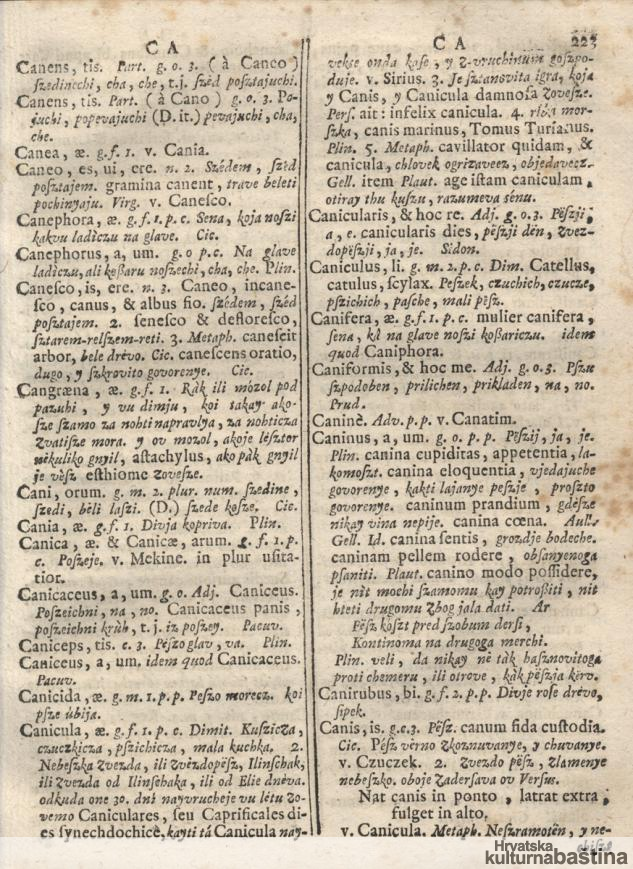 C A
Canens, tis. Part. g. o. 3. (à Caneo)
szedinechi, cha, che, t.j. széd posztajuchi.
Canens, tis. Part. (à Cano) g. o. 3. Po-
juchi, popevajuchi (D. it.) pevajuchi, cha,
che.
Canea, æ. g. f. 1. v. Cania.
Caneo, es, ui, ere. n. 2. Szédem, széd
posztajem. gramina canent, trave beleti
pochinyaju. Virg. v. Canesco.
Canephora, æ. g. f. 1. p. c. Sena, koja noszi
kakvu ladiczu na glave. Cic.
Canephorus, a, um. g. o p. c. Na glave
ladiczu, ali koßaru noszechi, cha, che. Plin.
Canesco, is, ere. n. 3. Caneo, incane-
sco, canus, & albus fio. szédem, széd
posztajem. 2. senesco & defloresco,
sztarem-relszem-reti. 3. Metaph. canescit
arbor, bele drévo. Cic. canescens oratio,
dugo, y szkrovito govorenye. Cic.
Cangræna, æ. g. f. 1. Ràk ili mozol pod
pazuhi, y vu dimju, koi takay ako-
sze szamo za nohti napravlya, za nohticza
zvatisze mora. y ov mozol, akoje lésztor
nèkuliko gnyil, astachylus, ako pàk gnyil
je vèsz esthiome zovesze.
Cani, orum. g. m. 2. plur. num. szedine,
szedi, bèli laszi. (D.) szede kosze. Cic.
Cania, æ. g. f. 1. Divja kopriva. Plin.
Canica, æ. & Canicæ, arum. g. f. 1. p.
c. Poszeje. v. Mekine. in plur usita-
tior.
Canicaceus, a, um. g. o. Adj. Caniceus.
Poszeichni, na, no. Canicaceus panis,
poszeichni krùh, t. j. iz poszey. Pacuv.
Caniceps, tis. c. 3. Pészoglav, va. Plin.
Caniceus, a, um. idem quod Canicaceus.
Pacuv.
Canicida, æ. g. m. 1. p. p. Peszo morecz. koi
psze úbija.
Canicula, æ. g. f. 1. p. c. Dimit. Kuszicza,
czuczkicza, pszichicza, mala kuchka. 2.
Nebeszka zvezda, ili zvèzdopèsz, Ilinschak,
ili zvezda od Ilinschaka, ili od Elie dnéva.
odkuda one 30. dni nayvrucheje vu létu zo-
vemo Caniculares, seu Caprificales di-
es synechdochicè, kayti tá Canicula nay-
C A 223
vekse onda kase, y z-vruchinum goszpo-
duje. v. Sirius. 3. Je sztanovita igra, koja
y Canis, y Canicula damnosa zovesze.
Pers. ait: infelix canicula. 4. riba mor-
szka, canis marinus, Tomus Turianus.
Plin. 5. Metaph. cavillator quidam, &
canicula, chlovek ogrizavecz, objedavecz.
Gell. item Plaut. age istam caniculam,
otiray thu kuszu, razumeva senu.
Canicularis, & hoc re. Adj. g. o. 3. Pészji,
a, e. canicularis dies, pészji dén, zvez-
dopészji, ja, je. Sidon.
Caniculus, li. g. m. 2. p. c. Dim. Catellus,
catulus, scylax. Peszek, czuchich, czucze,
pszichich, pasche, mali pész.
Canifera, æ. g. f. 1. p. c. mulier canifera,
sena, kà na glave noszi koßariczu. idem
quod Caniphora.
Caniformis, & hoc me. Adj. g. o. 3. Pszu
szpodoben, prilichen, prikladen, na, no.
Prud.
Caninè. Adv. p. p. v. Canatim.
Caninus, a, um. g. o. p. p. Pészji, ja, je.
Plin. canina cupiditas, appetentia, la-
komoszt. canina eloquentia, vjedajuche
govorenye, kakti lajanye peszje, proszto
govorenye. caninum prandium, gdésze
nikay vina nepije. canina cœna. Aul.
Gell. Id. canina sentis, grozdje bodeche.
caninam pellem rodere, obsanyenoga
psaniti. Plaut. canino modo possidere,
je nit mochi szamomu kay potrositi, nit
hteti drugomu zbog jala dati. Ar
Pèsz kószt pred szobum dersi,
Kontinoma na drugoga merchi.
Plin. veli, da nikay nè tàk hasznovitoga
proti chemeru, ili otrove, kàk pészja kèrv.
Canirubus, bi. g. f. 2. p. p. Divje rose drévo,
sipek.
Canis, is. g. c. 3. Pész. canum fida custodia.
Cic. Pész vérno zkoznuvanye, y chuvanye.
v. Czuczek. 2. zvezdo pész, zlamenye
nebeszko. oboje zadersava ov Versus.
Nat canis in ponto, latrat extra,
fulget in alto.
v. Canicula. Metaph. Neszramotén, y ne-
Hrvatska
kulturnabaština